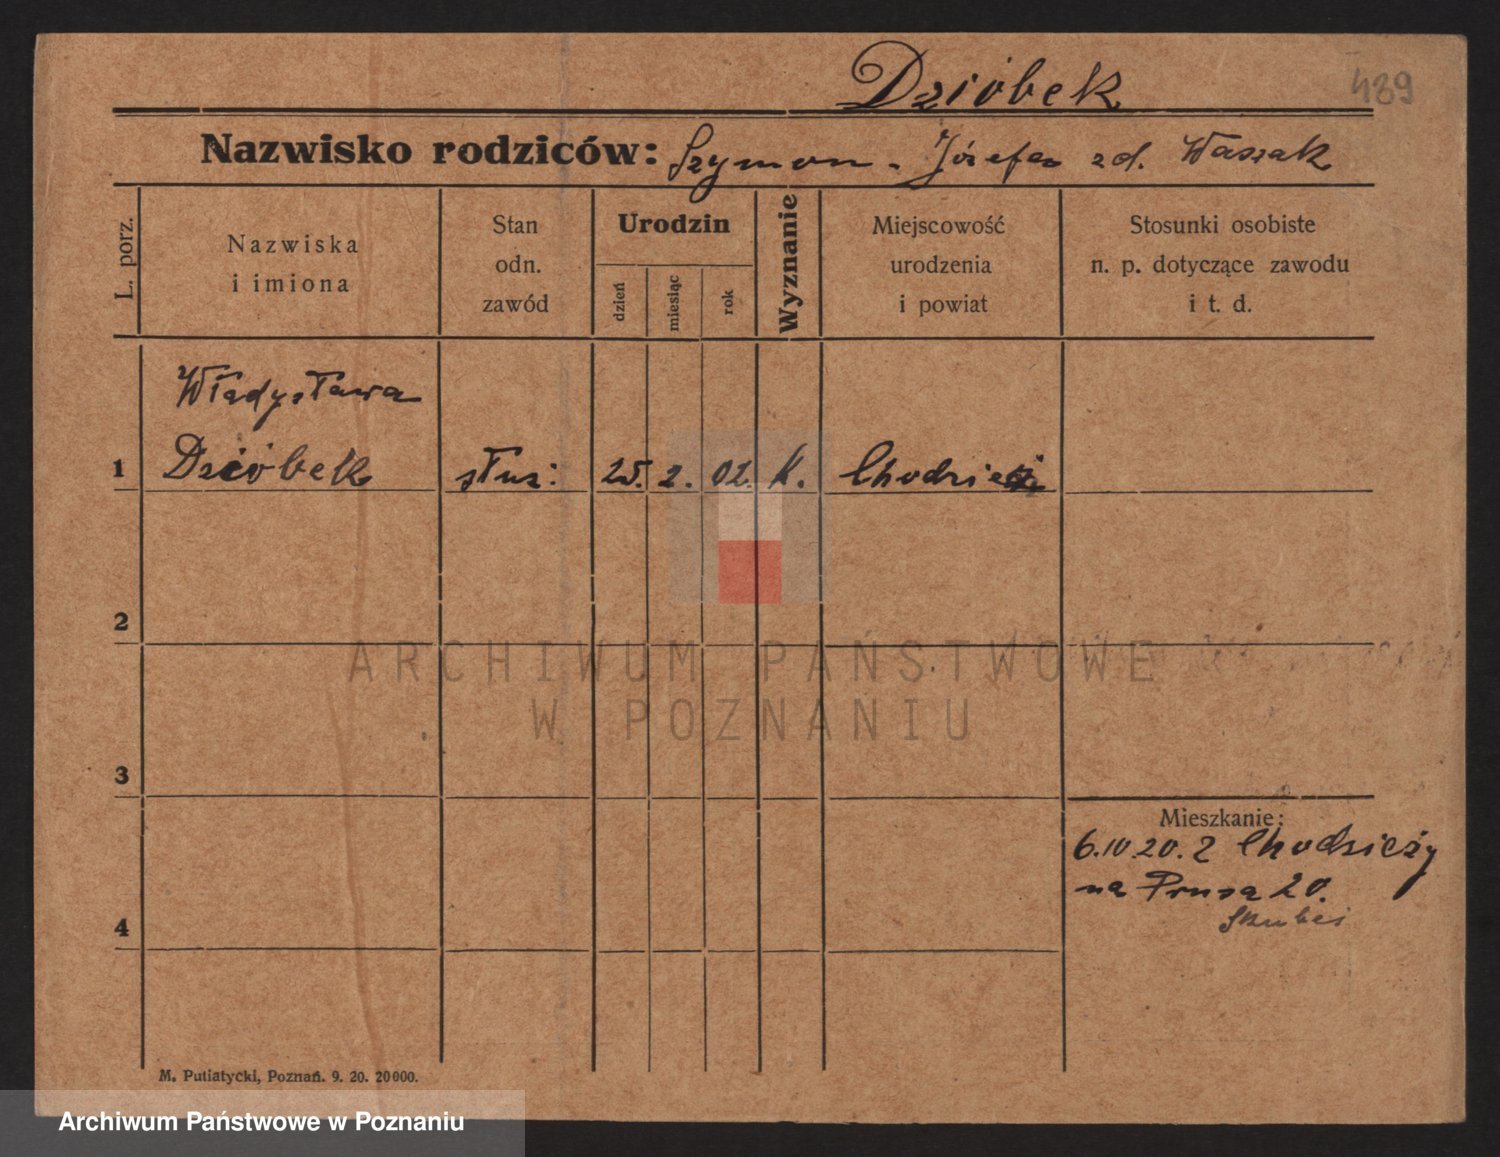 Dzióbek
489
Nazwisko rodziców: Szymon - Józefa zd. Waszak
L. porz.
Nazwiska
i imiona
Stan
odn.
zawód
Urodzin
dzień
miesiąc
rok
Wyznanie
Miejscowość
urodzenia
i powiat
Stosunki osobiste
n. p. dotyczące zawodu
i t. d.
Władysława
1 Dzióbek służ: 25. 2. 02. K. Chodzież
2
ARCHIWUM PAŃSTWOWE
W POZNANIU
3
Mieszkanie:
6.10.20. z Chodzieży
na Prusa 20.
4
M. Putiatycki, Poznań. 9. 20. 20000.
Archiwum Państwowe w Poznaniu